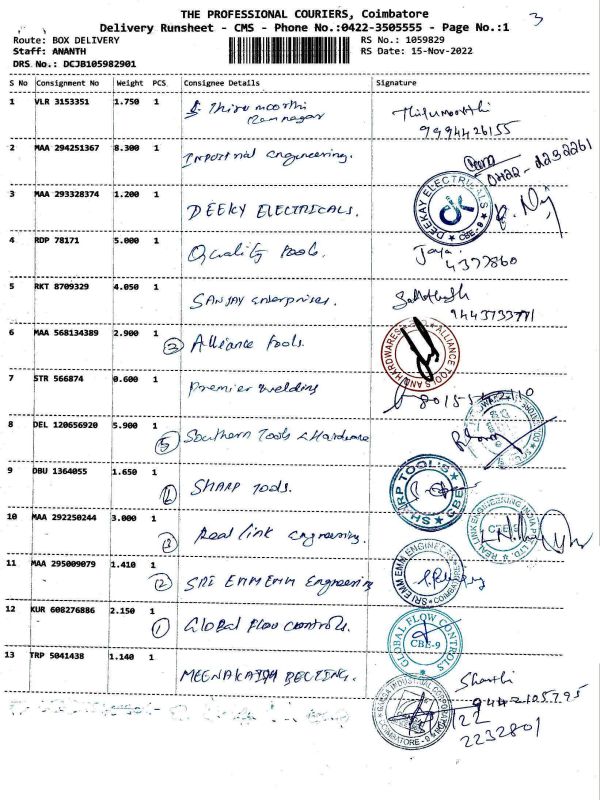 THE PROFESSIONAL COURIERS, Coimbatore
Delivery Runsheet - CMS - Phone No.:0422-3505555 - Page No.:1
3
Route: BOX DELIVERY
RS No.: 1059829
Staff: ANANTH
RS Date: 15-Nov-2022
DRS No.: DCJB105982901
S No Consignment No Weight PCS Consignee Details Signature
1 VLR 3153351 1.750 1 Thirumoorthi Thirumoorthi
Ramnagar 9994426155
2 MAA 294251367 8.300 1 Imporial engineering.
0422-2232261
3 MAA 293328374 1.200 1 DEEKY ELECTRICALS. DEEKAY ELECTRICALS CBE-9
4 RDP 78171 5.000 1 Quality tools. Jaya
4377860
5 RKT 8709329 4.050 1 SANJAY enterprises.
9443733771
6 MAA 568134389 2.900 1 3 Alliance tools. ALLIANCE TOOLS AND HARDWARES
7 STR 566874 0.600 1 Premier welding
8 DEL 120656920 5.900 1 5 Southern Tools & Hardware
9 DBU 1364055 1.650 1 SHARP TOOLS. SHARP TOOL'S CBE
10 MAA 292250244 3.000 1 Real link engineering. REAL LINK ENGINEERING INDIA PVT LTD. CBE-5
11 MAA 295009079 1.410 1 2 SRI EMM EMM Engineering SRI EMM EMM ENGINEERS COIMBATORE
12 KUR 608276886 2.150 1 1 Global Flow controls. GLOBAL FLOW CONTROLS CBE-9
13 TRP 5041438 1.140 1 MEENAKATHI BECTING. Shanthi
9442105795
COIMBATORE - 9
2232801